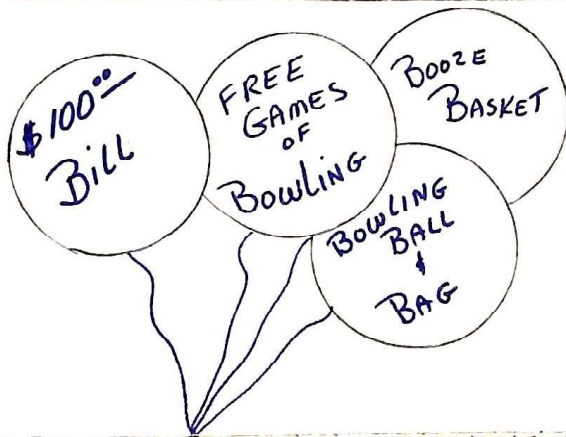 $100.00
Bill
FREE
GAMES
OF
BOWLING
BOOZE
BASKET
BOWLING
BALL
&
BAG